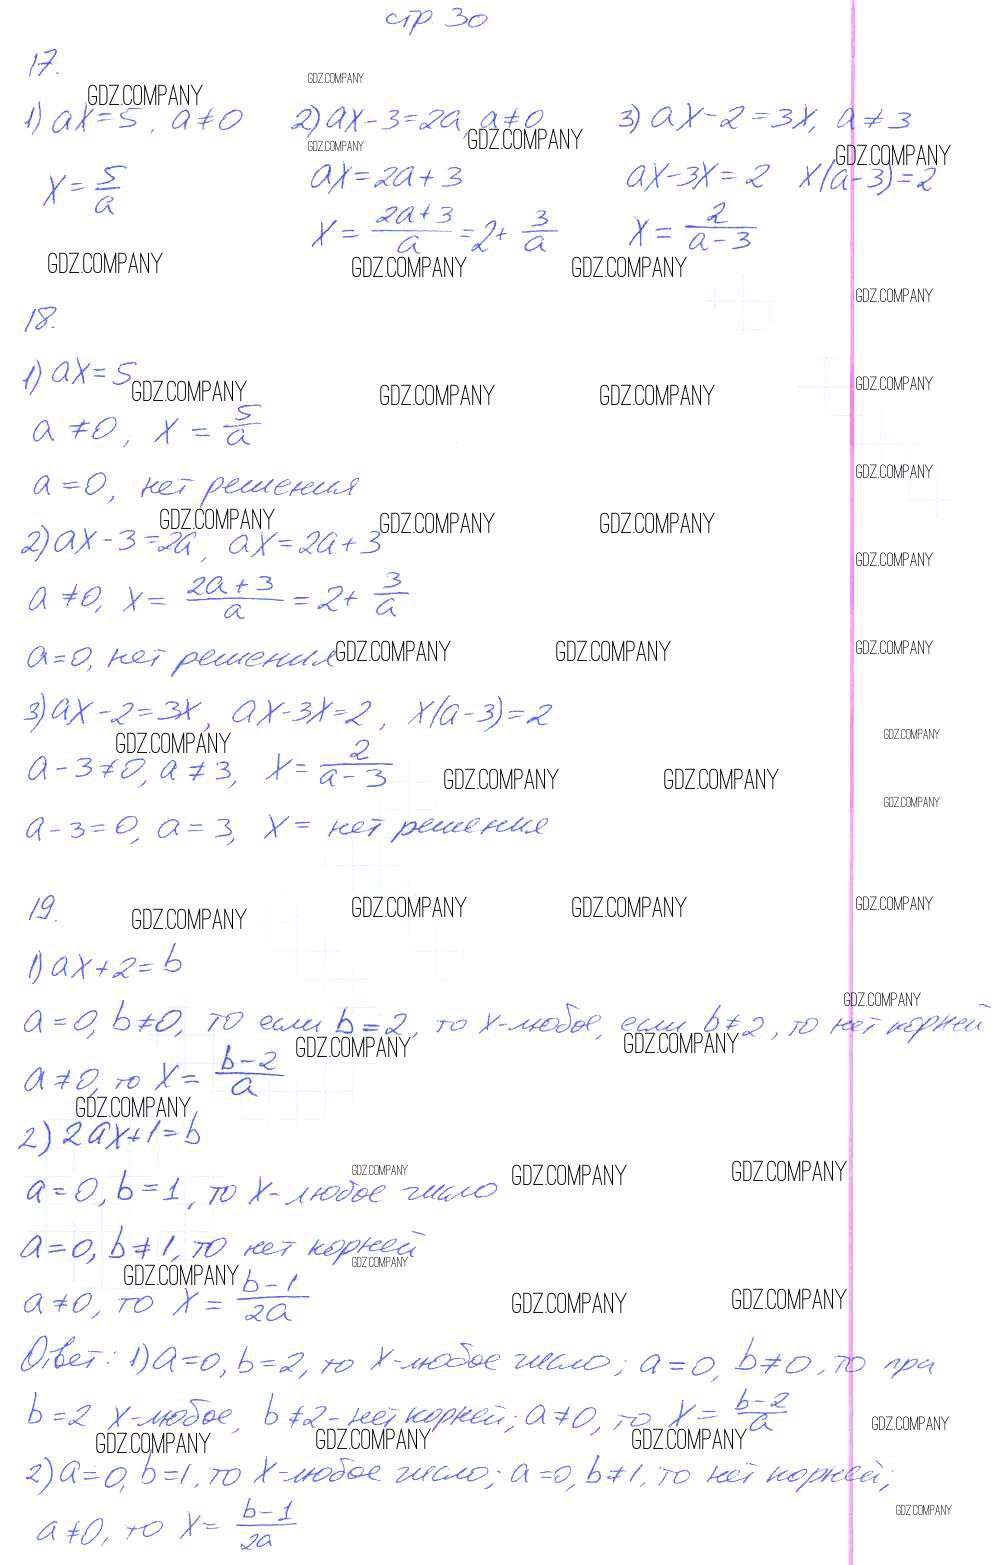 стр 30
17.
1) ax = 5, a ≠ 0   2) ax - 3 = 2a, a ≠ 0   3) ax - 2 = 3x, a ≠ 3
x = 5/a   ax = 2a + 3   ax - 3x = 2   x(a - 3) = 2
x = (2a + 3)/a = 2 + 3/a   x = 2/(a - 3)
18.
1) ax = 5
a ≠ 0, x = 5/a
a = 0, нет решения
2) ax - 3 = 2a, ax = 2a + 3
a ≠ 0, x = (2a + 3)/a = 2 + 3/a
a = 0, нет решения
3) ax - 2 = 3x, ax - 3x = 2, x(a - 3) = 2
a - 3 ≠ 0, a ≠ 3, x = 2/(a - 3)
a - 3 = 0, a = 3, x = нет решения
19.
1) ax + 2 = b
a = 0, b ≠ 0, то если b = 2, то x - любое, если b ≠ 2, то нет корней
a ≠ 0, то x = (b - 2)/a
2) 2ax + 1 = b
a = 0, b = 1, то x - любое число
a = 0, b ≠ 1, то нет корней
a ≠ 0, то x = (b - 1)/2a
Ответ: 1) a = 0, b = 2, то x - любое число; a = 0, b ≠ 0, то при
b = 2 x - любое, b ≠ 2 - нет корней; a ≠ 0, то x = (b - 2)/a
2) a = 0, b = 1, то x - любое число; a = 0, b ≠ 1, то нет корней;
a ≠ 0, то x = (b - 1)/2a
GDZ.COMPANY